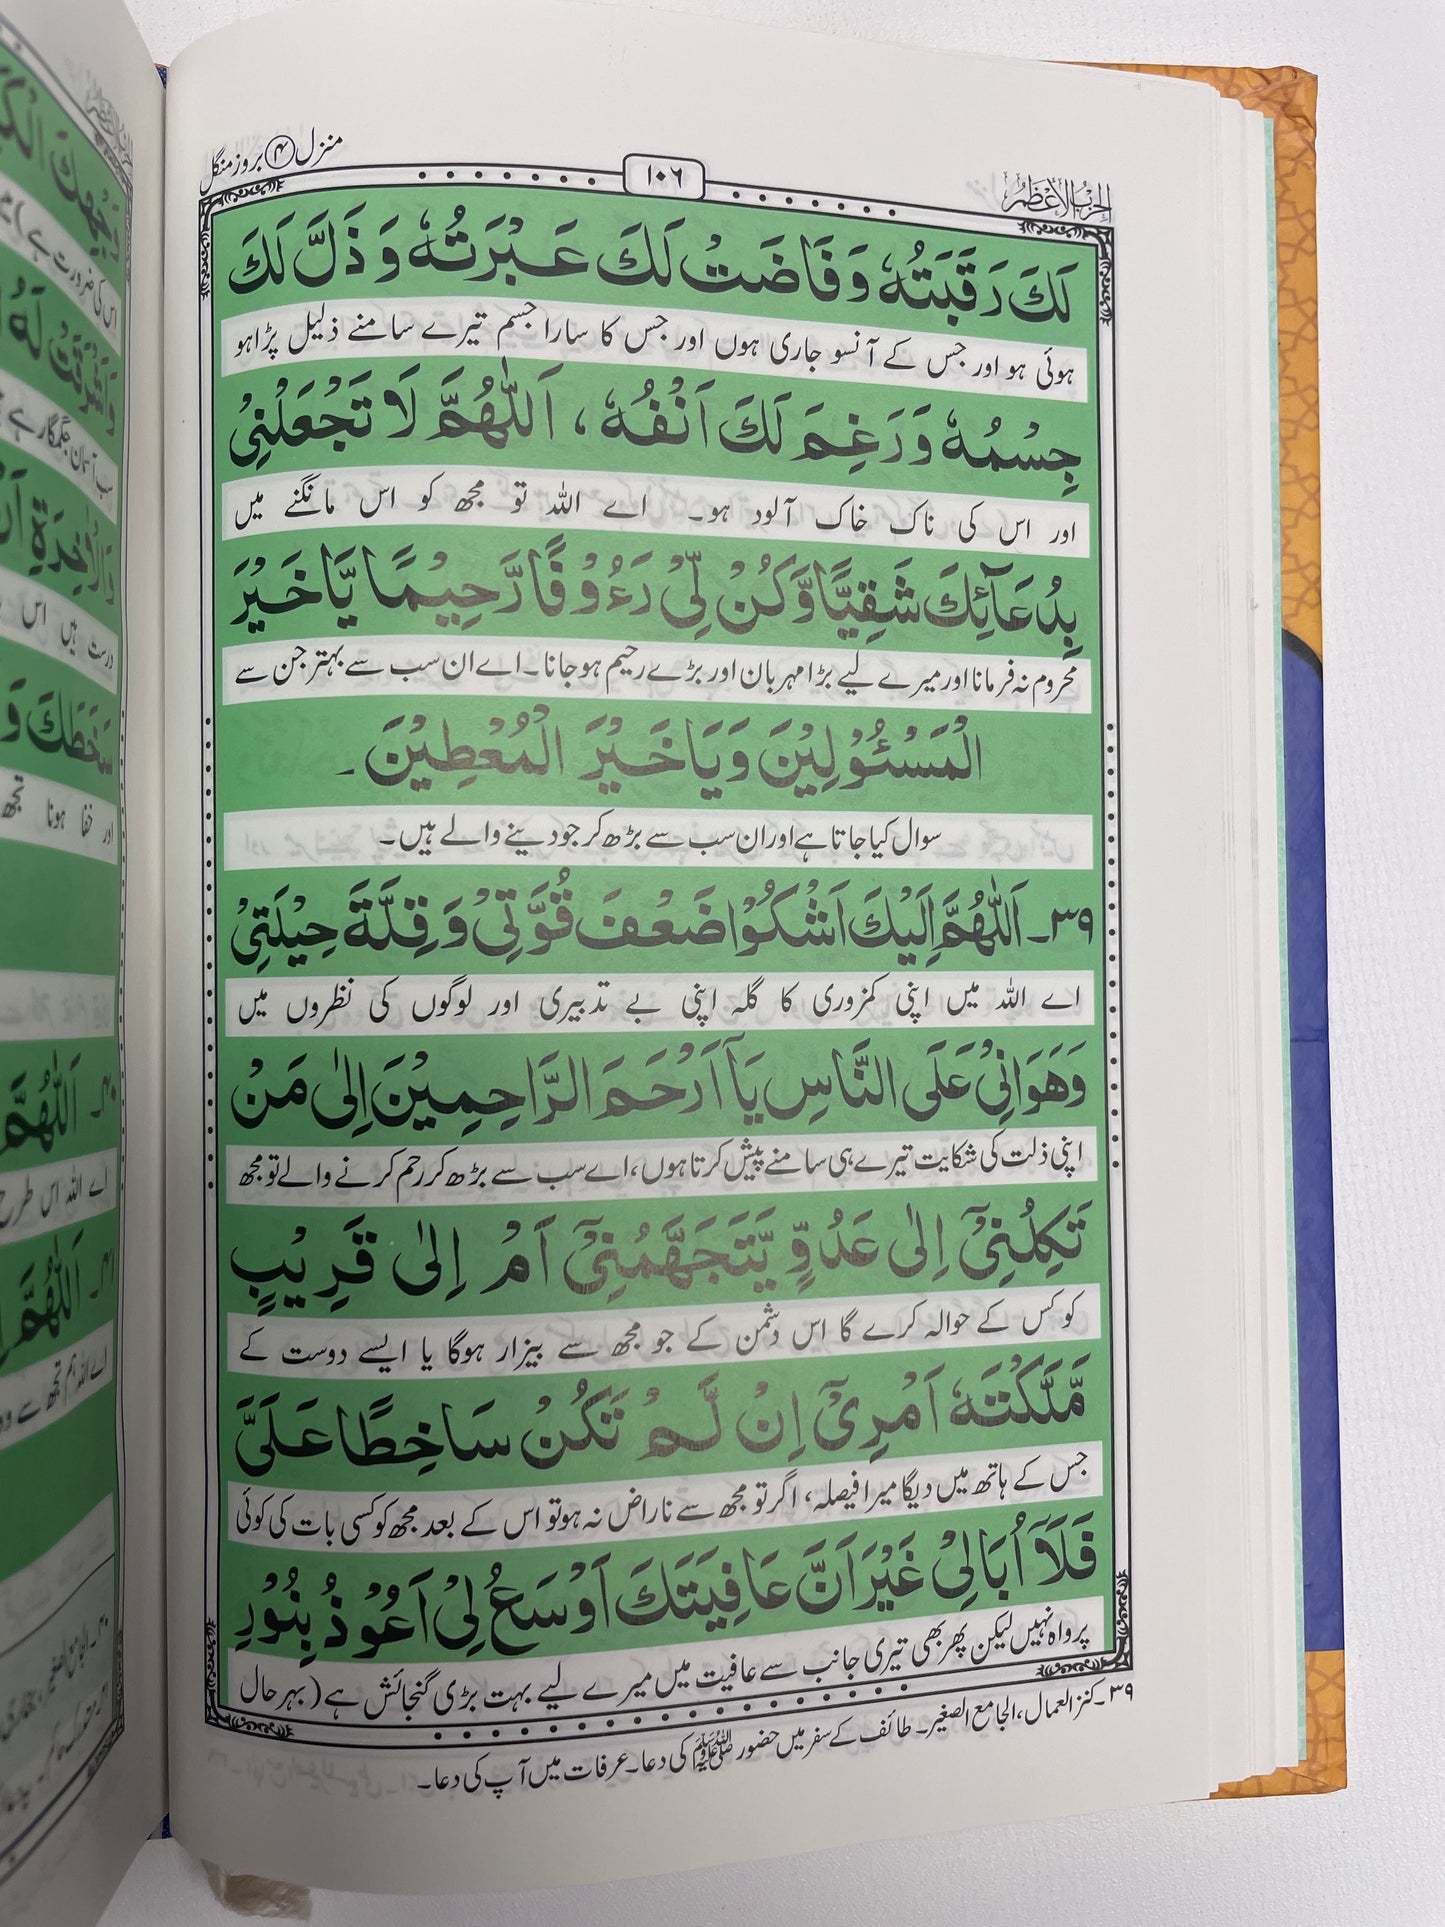 الحزب الاعظم
١٠٦
منزل ۴ بروز منگل
لَكَ رَقَبَتُهٗ وَفَاضَتْ لَكَ عَبْرَتُهٗ وَذَلَّ لَكَ
ہوئی ہو اور جس کے آنسو جاری ہوں اور جس کا سارا جسم تیرے سامنے ذلیل پڑا ہو
جِسْمُهٗ وَرَغِمَ لَكَ اَنْفُهٗ، اَللّٰهُمَّ لَا تَجْعَلْنِيْ
اور اس کی ناک خاک آلود ہو۔ اے اللہ تو مجھ کو اس مانگنے میں
بِدُعَآئِكَ شَقِيًّا وَّكُنْ لِّيْ رَءُوْفًا رَّحِيْمًا يَّا خَيْرَ
محروم نہ فرمانا اور میرے لیے بڑا مہربان اور بڑے رحیم ہو جانا۔ اے ان سب سے بہتر جن سے
الْمَسْئُوْلِيْنَ وَيَا خَيْرَ الْمُعْطِيْنَ۔
سوال کیا جاتا ہے اور ان سب سے بڑھ کر جو دینے والے ہیں۔
٣٩۔ اَللّٰهُمَّ اِلَيْكَ اَشْكُوْا ضَعْفَ قُوَّتِيْ وَقِلَّةَ حِيْلَتِيْ
اے اللہ میں اپنی کمزوری کا گلہ اپنی بے تدبیری اور لوگوں کی نظروں میں
وَهَوَانِيْ عَلَى النَّاسِ يَآ اَرْحَمَ الرَّاحِمِيْنَ اِلٰى مَنْ
اپنی ذلت کی شکایت تیرے ہی سامنے پیش کرتا ہوں، اے سب سے بڑھ کر رحم کرنے والے تو مجھ
تَكِلُنِيْٓ اِلٰى عَدُوٍّ يَّتَجَهَّمُنِيْٓ اَمْ اِلٰى قَرِيْبٍ
کو کس کے حوالہ کرے گا اس دشمن کے جو مجھ سے بیزار ہوگا یا ایسے دوست کے
مَّلَّكْتَهٗ اَمْرِيْٓ اِنْ لَّمْ تَكُنْ سَاخِطًا عَلَيَّ
جس کے ہاتھ میں دیگا میرا فیصلہ، اگر تو مجھ سے ناراض نہ ہو تو اس کے بعد مجھ کو کسی بات کی کوئی
فَلَآ اُبَالِيْ غَيْرَ اَنَّ عَافِيَتَكَ اَوْسَعُ لِيْ اَعُوْذُ بِنُوْرِ
پرواہ نہیں لیکن پھر بھی تیری جانب سے عافیت میں میرے لیے بہت بڑی گنجائش ہے (بہرحال
٣٩۔ کنز العمال، الجامع الصغیر۔ طائف کے سفر میں حضور ﷺ کی دعا۔ عرفات میں آپ کی دعا۔